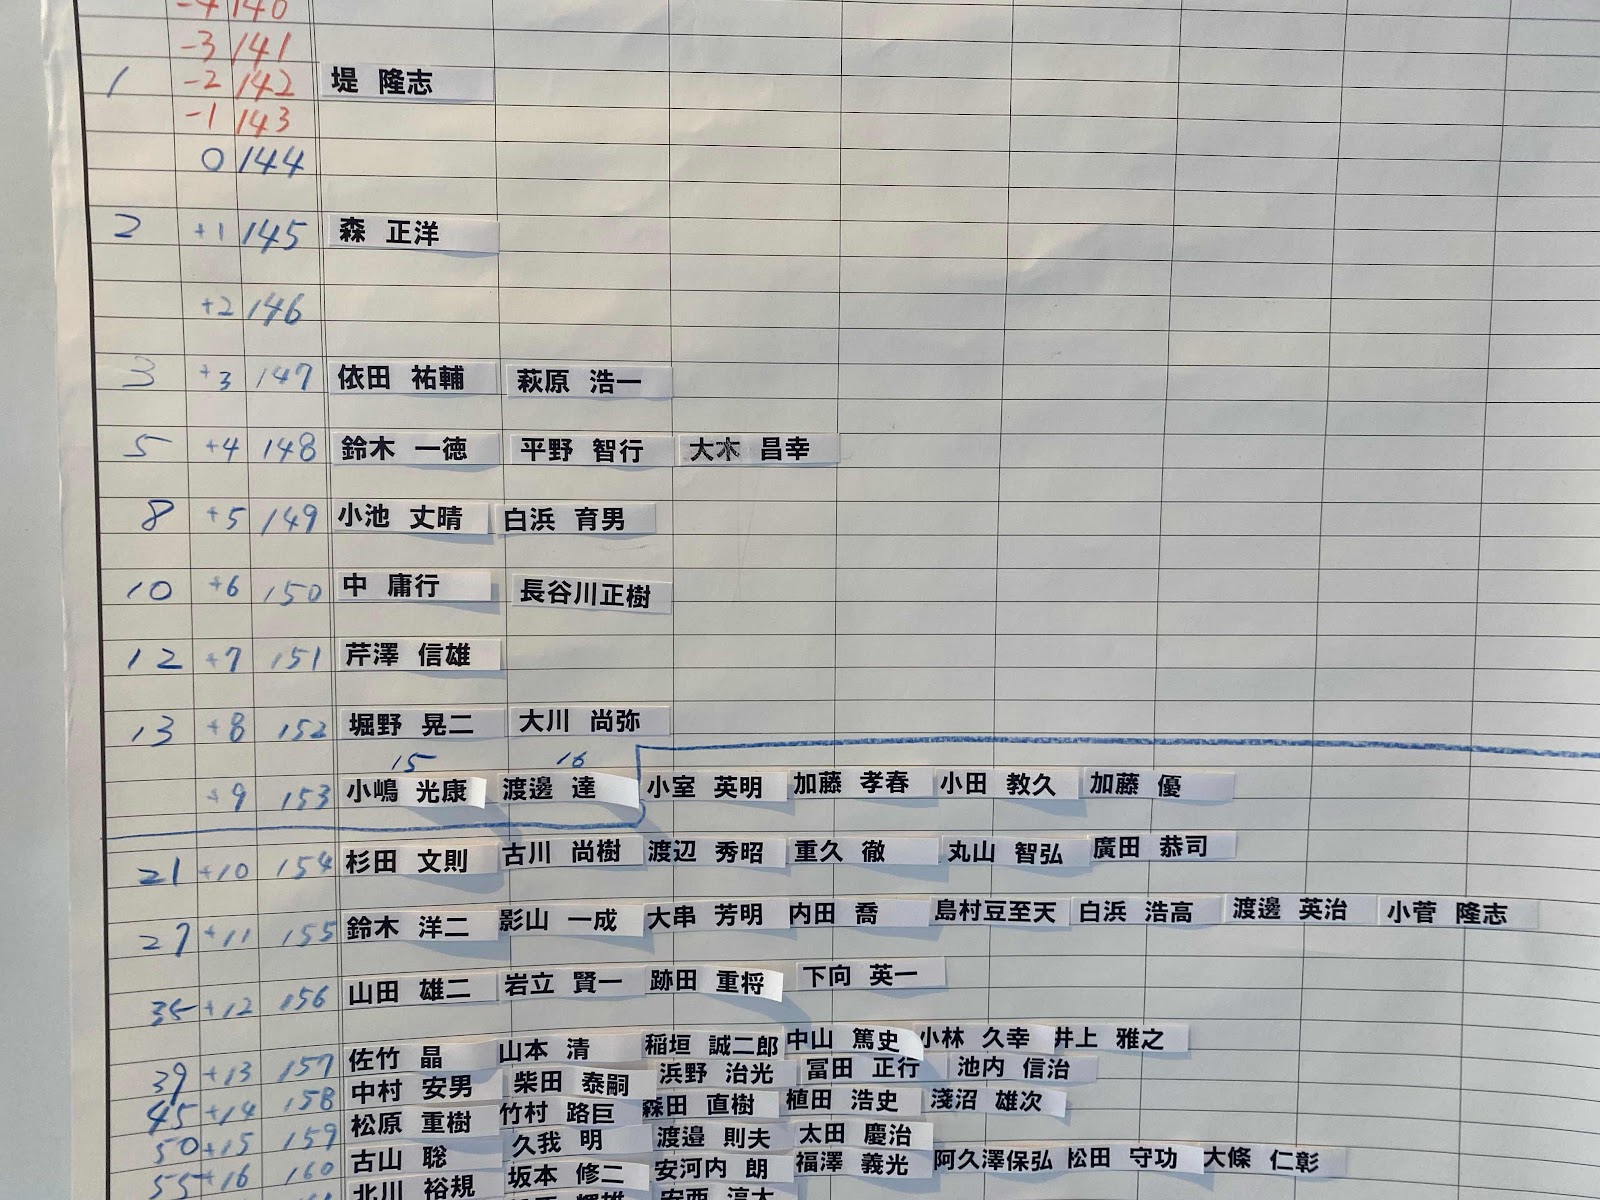 -4 140
-3 141
1 -2 142 堤 隆志
-1 143
0 144
2 +1 145 森 正洋
+2 146
3 +3 147 依田 祐輔 萩原 浩一
5 +4 148 鈴木 一徳 平野 智行 大木 昌幸
8 +5 149 小池 丈晴 白浜 育男
10 +6 150 中 庸行 長谷川正樹
12 +7 151 芹澤 信雄
13 +8 152 堀野 晃二 大川 尚弥
15 16
+9 153 小嶋 光康 渡邊 達 小室 英明 加藤 孝春 小田 教久 加藤 優
21 +10 154 杉田 文則 古川 尚樹 渡辺 秀昭 重久 徹 丸山 智弘 廣田 恭司
27 +11 155 鈴木 洋二 影山 一成 大串 芳明 内田 喬 島村豆至天 白浜 浩高 渡邊 英治 小菅 隆志
35 +12 156 山田 雄二 岩立 賢一 跡田 重将 下向 英一
39 +13 157 佐竹 晶 山本 清 稲垣 誠二郎 中山 篤史 小林 久幸 井上 雅之
45 +14 158 中村 安男 柴田 泰嗣 浜野 治光 冨田 正行 池内 信治
50 +15 159 松原 重樹 竹村 路巨 森田 直樹 植田 浩史 淺沼 雄次
55 +16 160 古山 聡 久我 明 渡邉 則夫 太田 慶治
北川 裕規 坂本 修二 安河内 朗 福澤 義光 阿久澤保弘 松田 守功 大條 仁彰